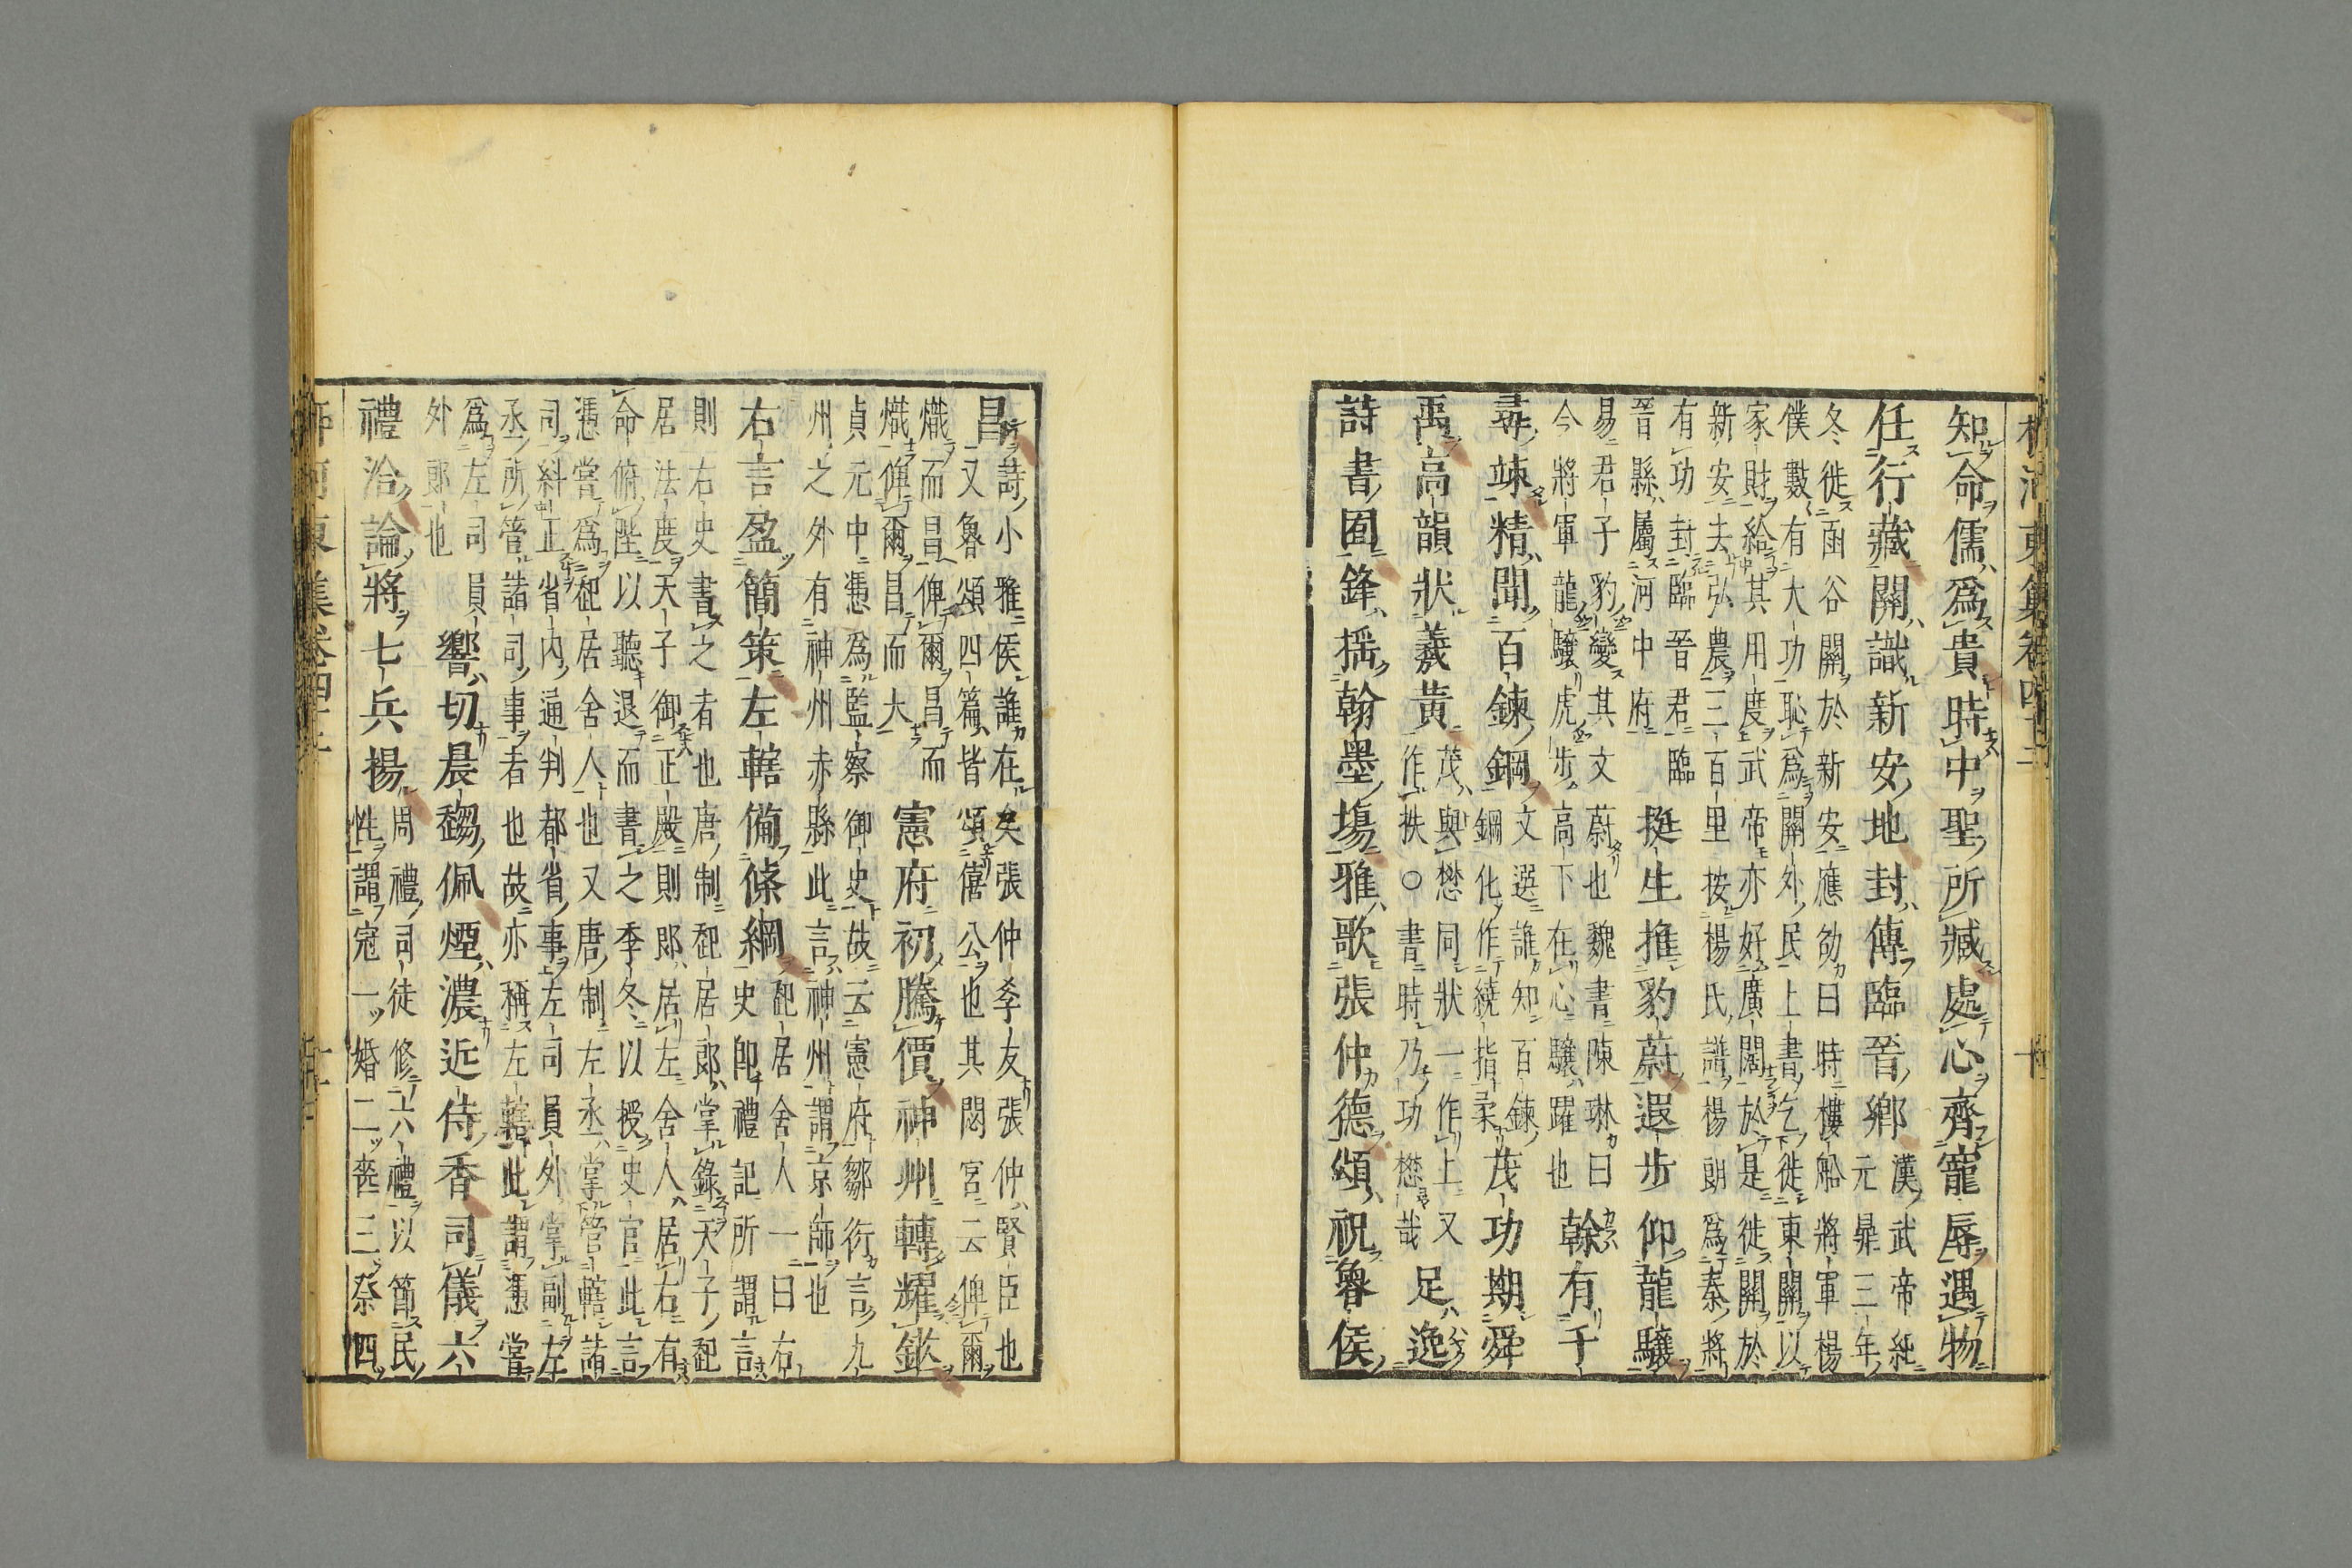 柳河東集卷四十二 十
知命儒爲貴時中聖所臧處心齊寵辱遇物
任行藏關識新安地封傳臨晉鄉漢武帝純元鼎三年
冬徙函谷關於新安應劭曰時樓船將軍楊
僕數有大功恥爲關外民上書乞徙東關以
家財給其用度武帝亦好廣闊於是徙關於
新安去弘農三百里按楊氏譜楊朗爲秦將
有功封臨晉君臨
晉縣屬河中府挺生推豹蔚遐步仰龍驤
易君子豹變其文蔚也魏書陳琳曰
今將軍龍驤虎步高下在心驤躍也幹有千
尋竦精聞百鍊鋼文選誰知百鍊鋼化作繞指柔茂功期舜
禹高韻狀羲黃茂與懋同狀一作上又作軼○書時乃功懋哉足逸
詩書囿鋒搖翰墨場雅歌張仲德頌祝魯侯
昌詩小雅侯誰在矣張仲孝友張仲賢臣也
又魯頌四篇皆頌僖公也其閟宮云俾爾
熾而昌俾爾昌而
熾俾爾昌而大憲府初騰價神州轉耀鋩
貞元中憑爲監察御史故云憲府鄒衍言九
州之外有神州赤縣此言神州謂京師也
右言盈簡策左轄備條綱起居舍人一曰右史卽禮記所謂言
則右史書之者也唐制起居郎掌錄天子起
居法度天子御正殿則郎居左舍人居右有
命俯陛以聽退而書之季冬以授史官此言
憑嘗爲起居舍人也又唐制左丞掌管轄諸
司糾正省內通判都省事左司員外掌副左
丞所管諸司事者也故亦稱左轄此謂憑嘗
爲左司員
外郎也響切晨趨佩煙濃近侍香司儀六
禮洽論將七兵揚周禮司徒修六禮以節民性謂冠一婚二喪三祭四
柳河東集卷四十二 十一